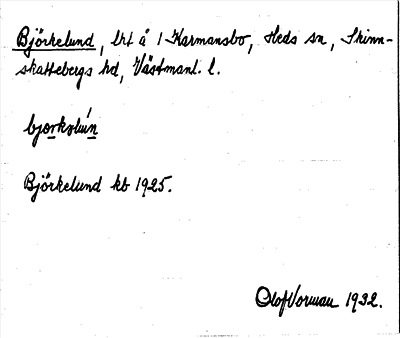 Björkelund, lht å 1 Karmansbo, Heds sn, Skinn-
skattebergs hd, Västmanl. l.
Björkelund kb 1925.
Olof Vorman 1932.